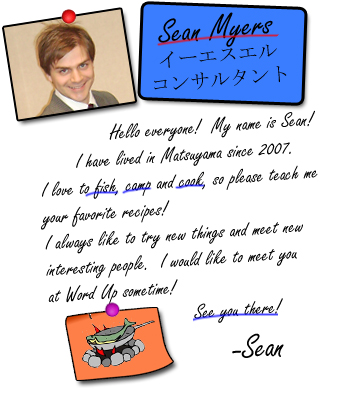 Sean Myers
イーエスエル
コンサルタント
Hello everyone! My name is Sean!
I have lived in Matsuyama since 2007.
I love to fish, camp and cook, so please teach me
your favorite recipes!
I always like to try new things and meet new
interesting people. I would like to meet you
at Word Up sometime!
See you there!
-Sean